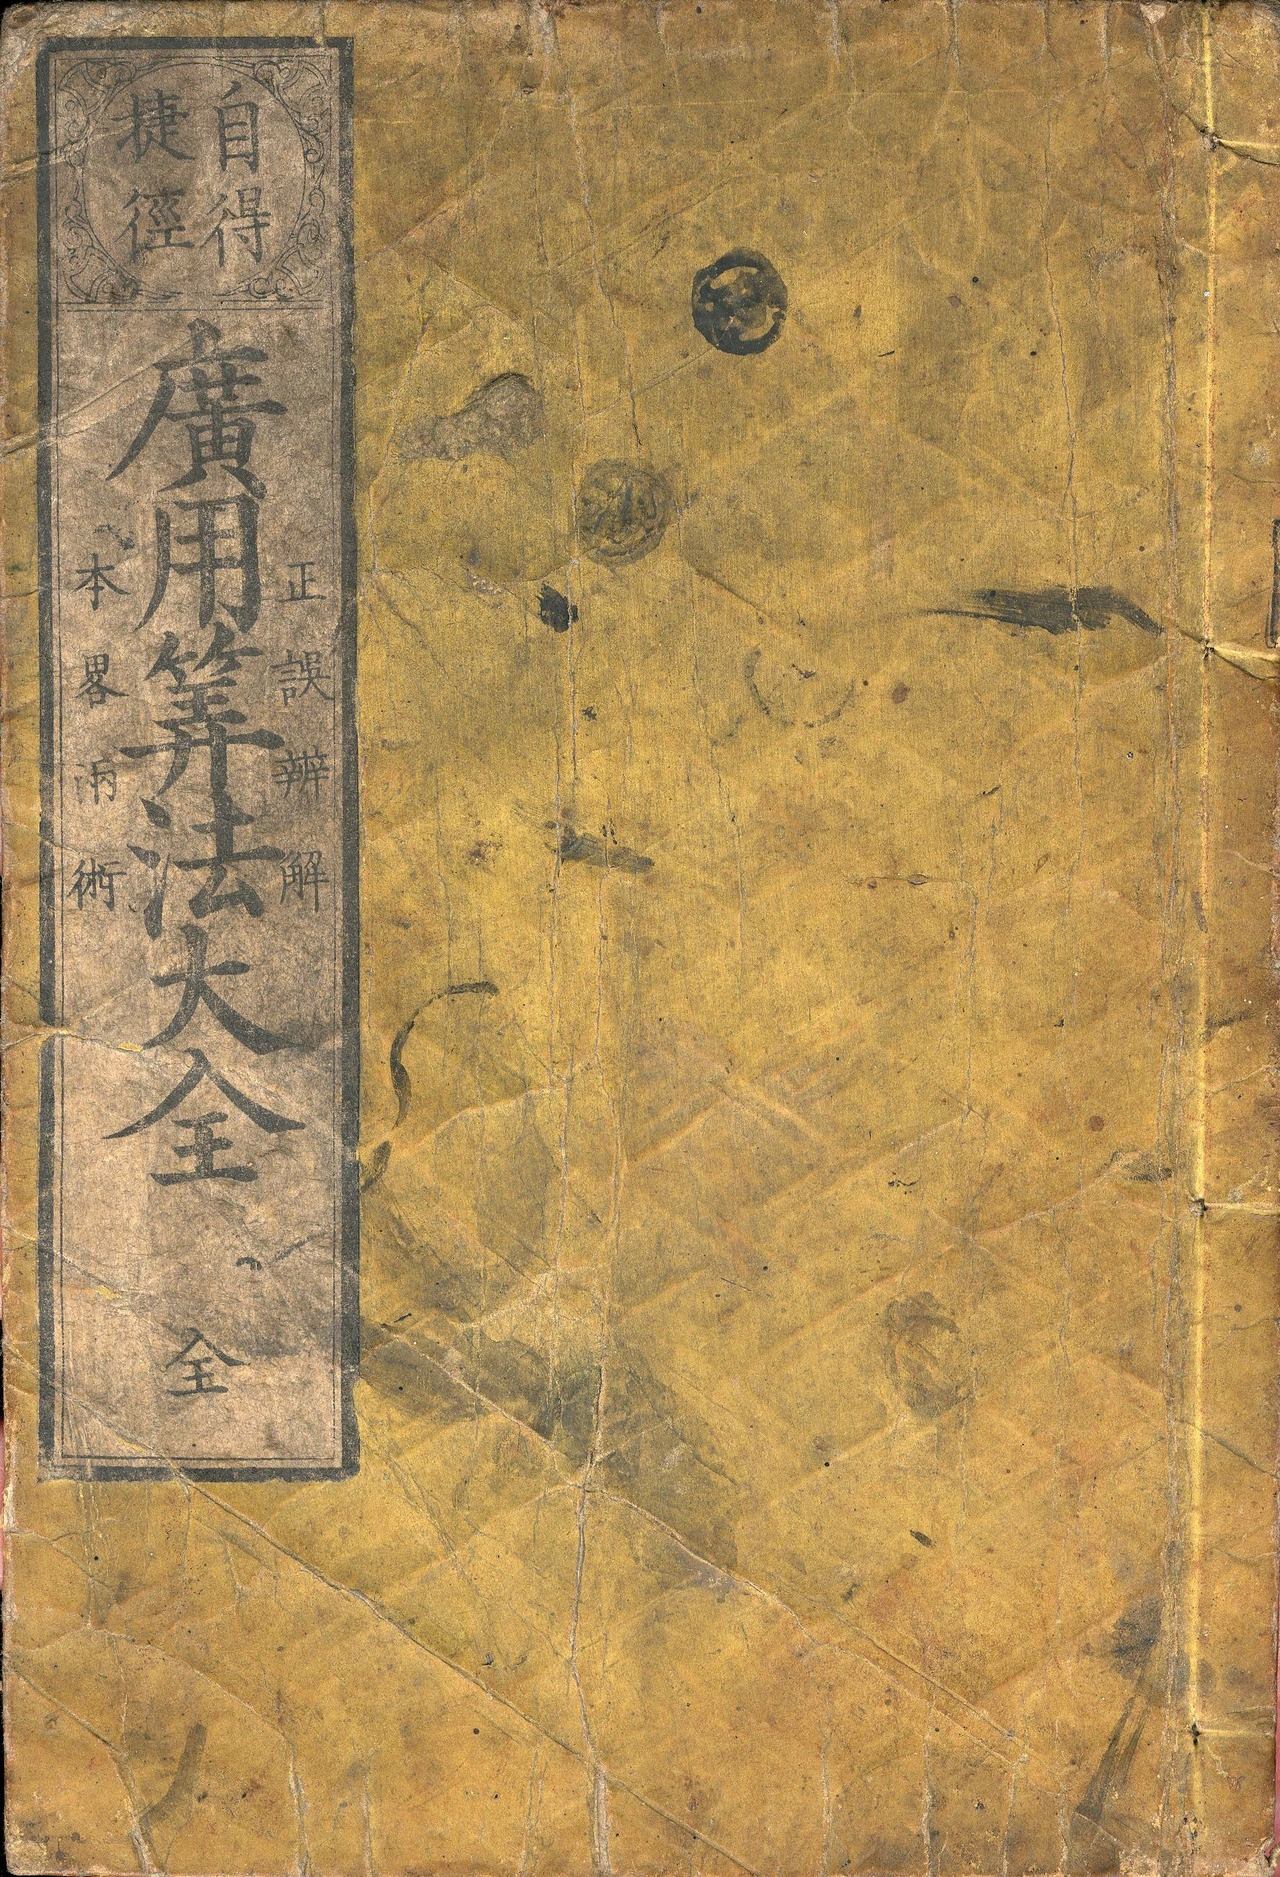 自得
捷徑
正誤辨解
廣用筭法大全
本畧両術
全